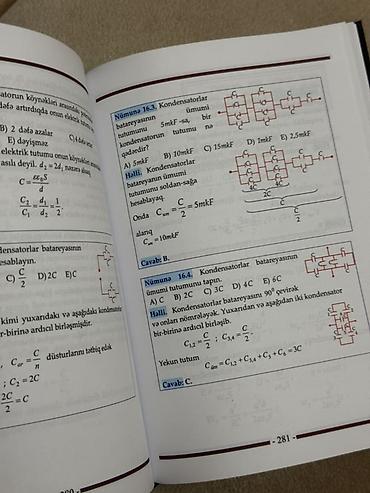 satorun köynəkləri arasındakı
dəfə artırdıqda onun elektrik
B) 2 dəfə azalar
C)4 dəfə
E) dəyişməz
elektrik tutumu onun köynəkləri arasındakı
asılı deyil. d₂ = 2d₁ nəzərə alsaq
C = εε₀S / d
C₂ / C₁ = d₁ / d₂ = 1 / 2.
densatorlar batareyasının
hesablayın.
C) C/2 D) 2C E)C
kimi yuxarıdakı və aşağıdakı kondensatorlar
ir-birinə ardıcıl birləşmişdir.
düsturlarını tətbiq edək
; C₂ = 2C
2C / 2 = C
Nümunə 16.3. Kondensatorlar
batareyasının ümumi
tutumunu 5mkF -sa, bir
kondensatorun tutumu nə
qədərdir?
A) 5mkF B) 10mkF C) 15mkF D) 1mkF E) 2,5mkF
Həlli. Kondensatorlar
batareyanın ümumi
tutumunu soldan-sağa
hesablayaq.
4C 4C
2C C
C/2
Onda Cüm = C/2 = 5mkF
alarıq
C = 10mkF
Cavab: B.
Nümunə 16.4. Kondensatorlar batareyasının
ümumi tutumunu tapın.
A) C B) 2C C) 3C D) 4C E) 6C
Həlli. Kondensatorlar batareyasını 90⁰ çevirək
və onları nömrələyək. Yuxarıdan və aşağıdan iki kondensator
bir-birinə ardıcıl birləşib.
C₁,₂ = C/2 ; C₃,₄ = C/2.
Yekun tutum
Cüm = C₁,₂ + C₃,₄ + C₅ + C₆ = 3C
Cavab: C.
- 281 -